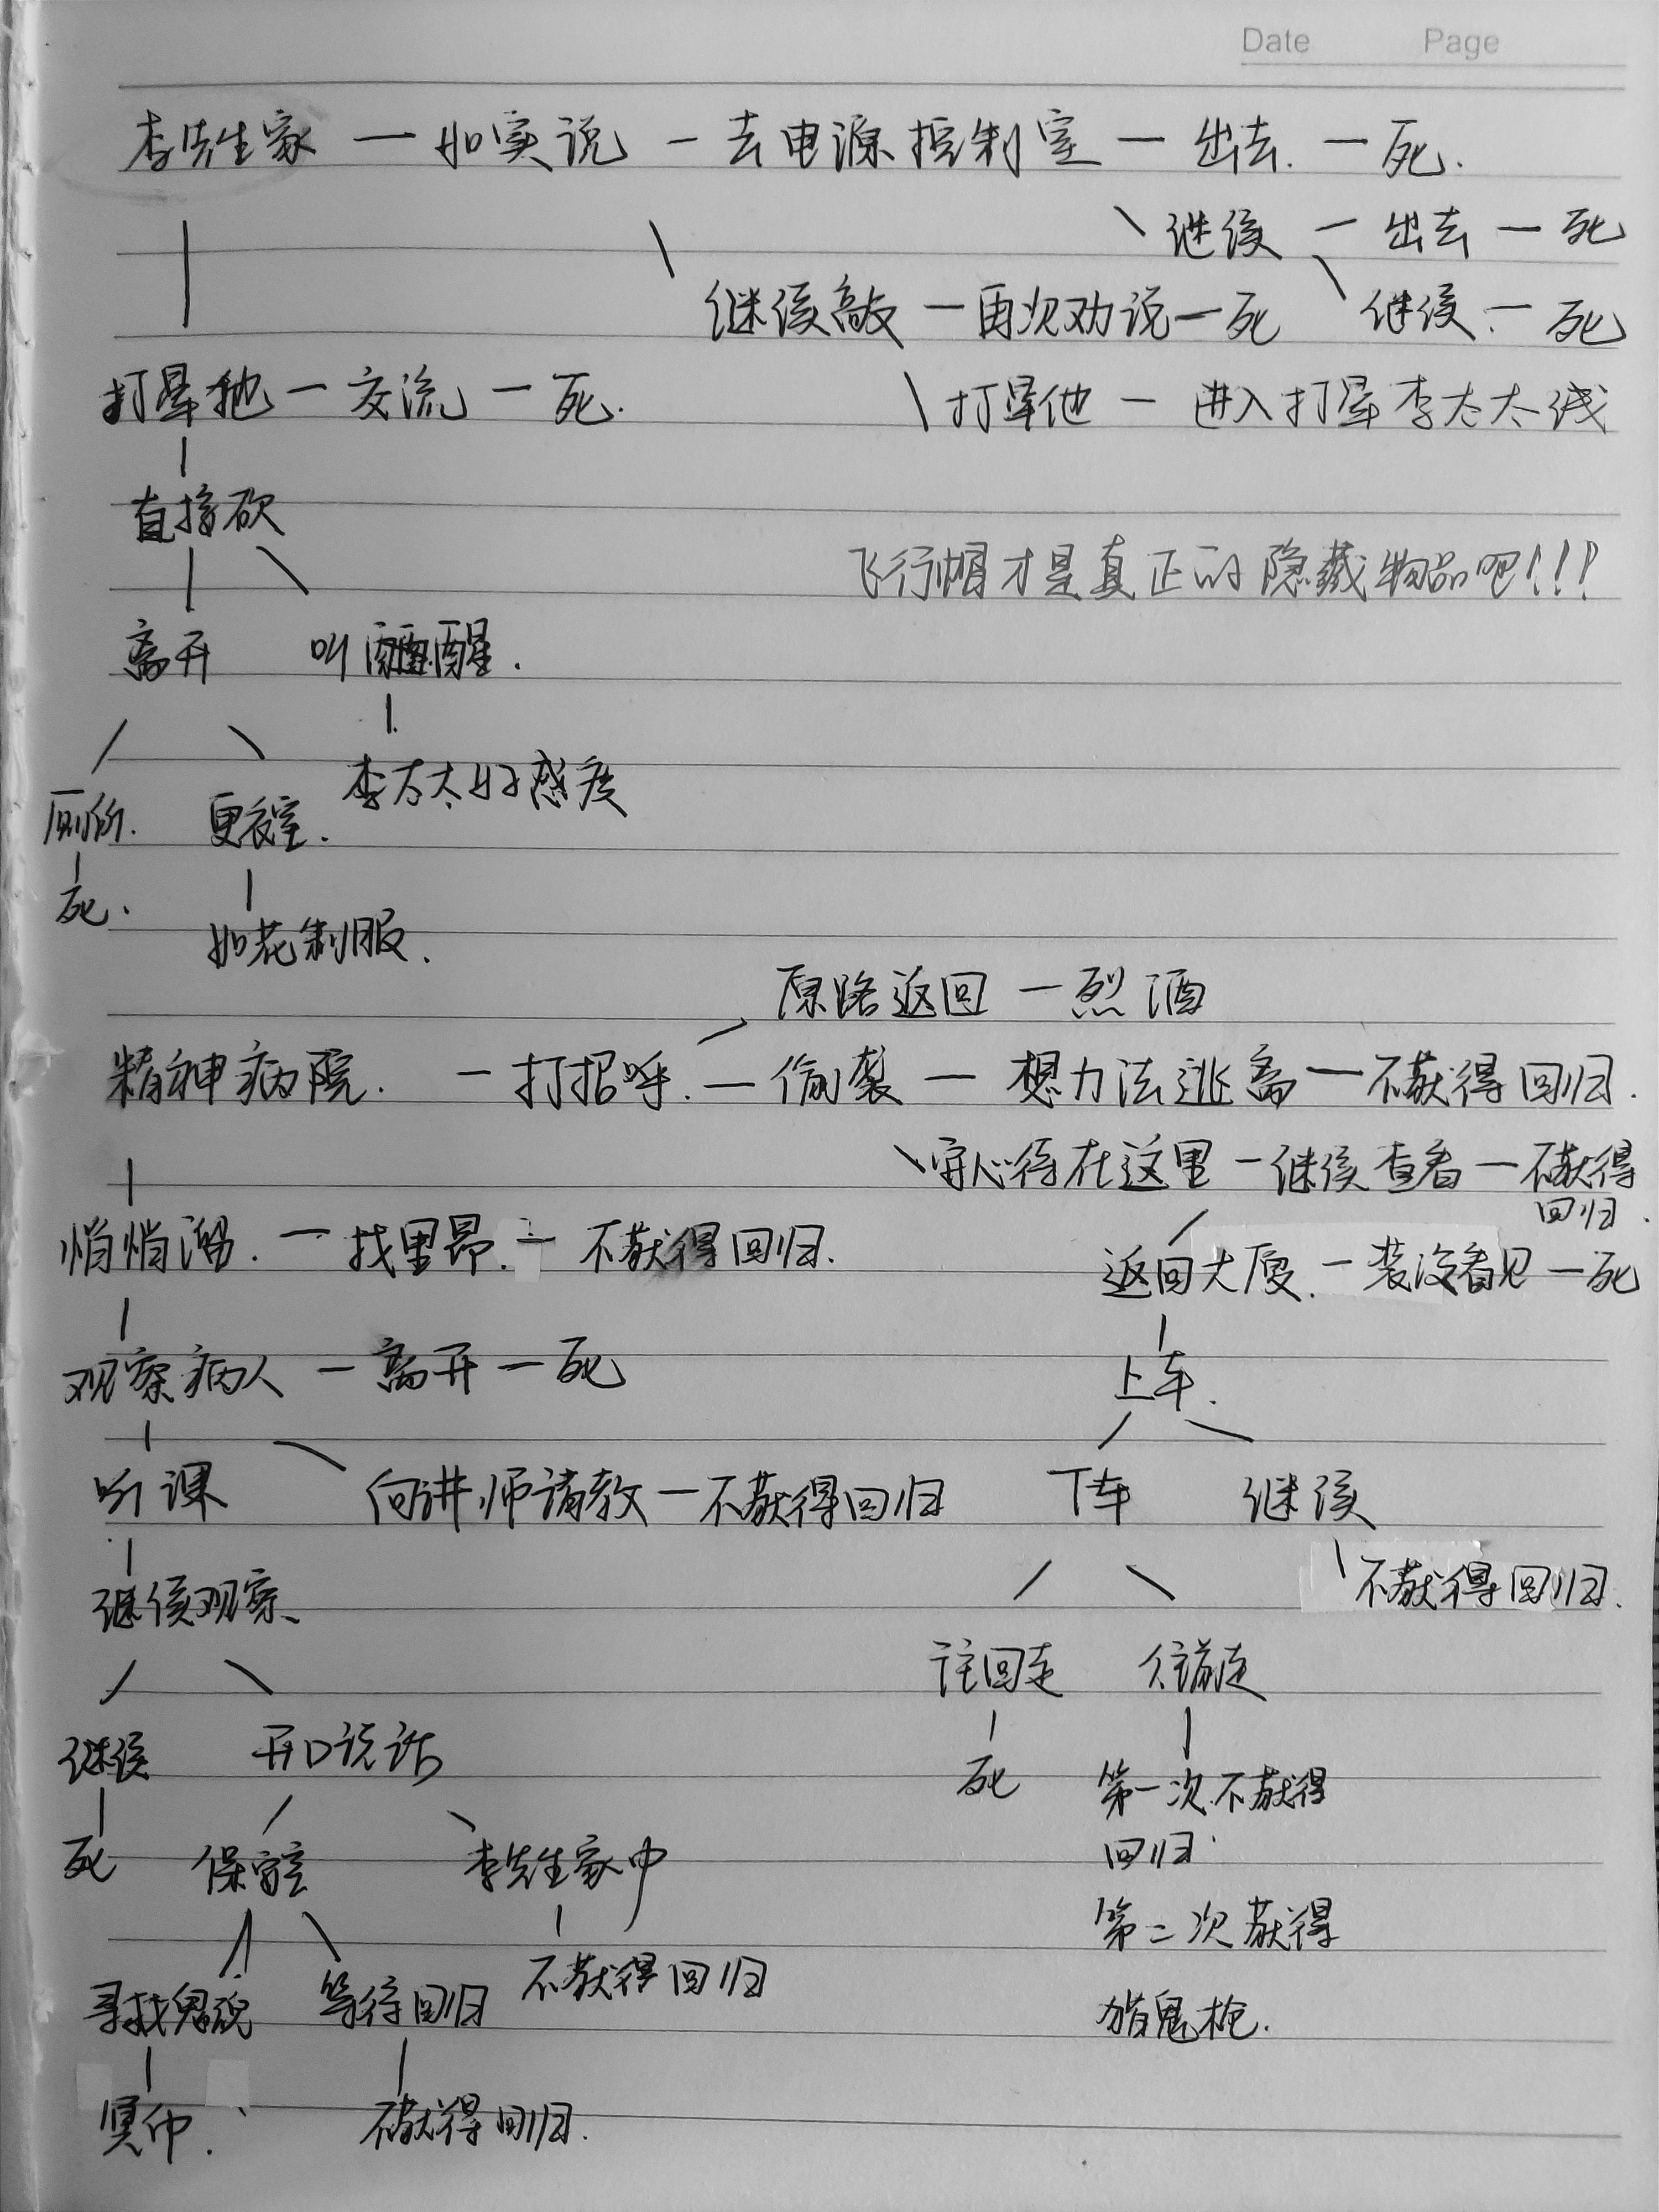 Date Page
李先生家 — 如实说 — 去电源控制室 — 出去. — 死.
继续 — 出去 — 死
继续敲 — 再次劝说 — 死 继续 — 死
打晕他 — 交流 — 死. 打晕他 — 进入打晕李太太线
直接砍
飞行帽才是真正的隐藏物品吧!!!
离开 叫醒.
李太太好感度
厕所. 更衣室.
死. 如花制服.
原路返回 — 烈酒
精神病院. — 打招呼. — 偷袭 — 想办法逃离 — 不获得回归.
安心待在这里 — 继续查看 — 不获得
回归.
悄悄溜. — 找里昂. — 不获得回归. 返回大厦. — 装没看见 — 死
观察病人 — 离开 — 死 上车.
听课 向讲师请教 — 不获得回归 下车 继续
继续观察 不获得回归.
往回走 往前走
继续 开口说话 死 第一次不获得
死 保安室 李先生家中 回归.
第二次获得
寻找鬼魂 等待回归 不获得回归 猎鬼枪.
冥币. 不获得回归.